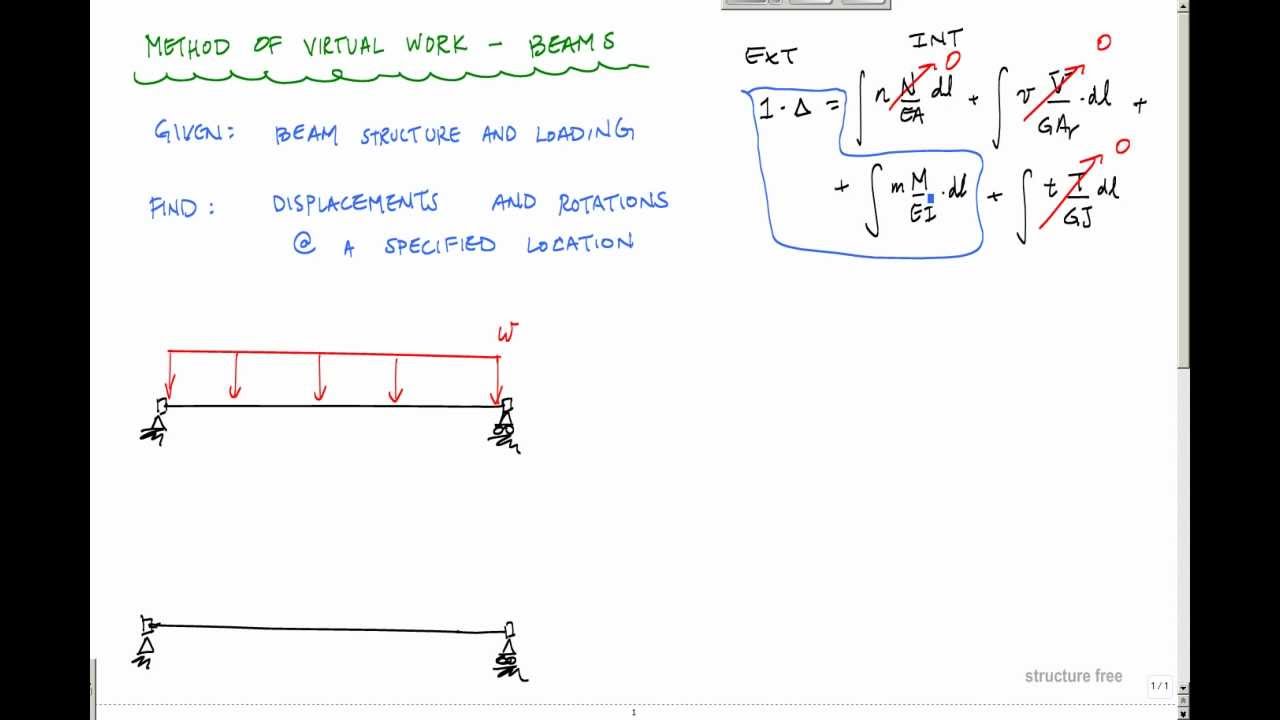 METHOD OF VIRTUAL WORK - BEAMS
GIVEN: BEAM STRUCTURE AND LOADING
FIND: DISPLACEMENTS AND ROTATIONS
@ A SPECIFIED LOCATION
EXT INT
1 · Δ = ∫ n N/EA dl + ∫ v V/GAr · dl +
0 0
+ ∫ m M/EI · dl + ∫ t T/GJ dl
0
W
structure free
1 / 1
1